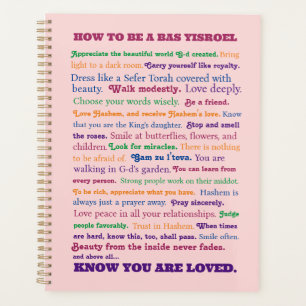 HOW TO BE A BAS YISROEL
Appreciate the beautiful world G-d created. Bring
light to a dark room. Carry yourself like royalty.
Dress like a Sefer Torah covered with
beauty. Walk modestly. Love deeply.
Choose your words wisely. Be a friend.
Love Hashem, and receive Hashem's love. Know
that you are the King's daughter. Stop and smell the
roses. Smile at butterflies, flowers, and
children. Look for miracles. There is nothing
to be afraid of. Bam zu l'tova. You are
walking in G-d's garden. You can learn from
every person. Strong people work on their middot.
To be rich, appreciate what you have. Hashem is
always just a prayer away. Pray sincerely.
Love peace in all your relationships. Judge
people favorably. Trust in Hashem. When times
are hard, know this, too, shall pass. Smile often.
Beauty from the inside never fades.
and above all...
KNOW YOU ARE LOVED.